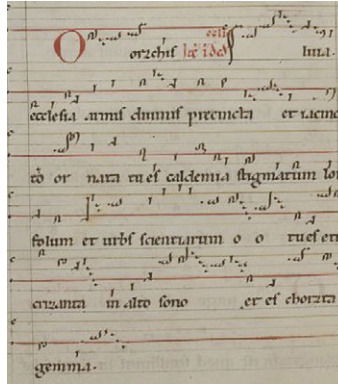 O orzchis
ecclesia armis diuinis precincta et iacinc
to or nata tu es caldemia stigmatum loi
folum et urbs scientiarum o o tu es eti
crizanta in alto sono et es chorzta
gemma.